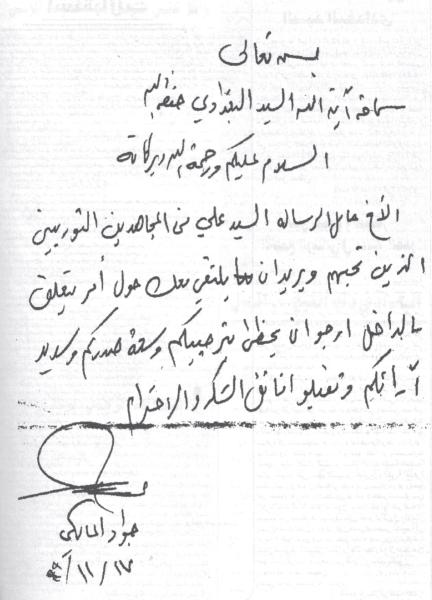 بسمه تعالى
سماحة آية الله السيد البغدادي حفظه الله
السلام عليكم ورحمة الله وبركاته
الأخ حامل الرسالة السيد علي من المجاهدين الثوريين
الذين نحبهم ويريد ان يلتقي معك حول أمر يتعلق
بالداخل ارجو ان يحظى بترحيبكم وسعة صدركم وسديد
آرائكم وتقبلوا فائق الشكر والاحترام
جواد المالكي
١٧/١١/